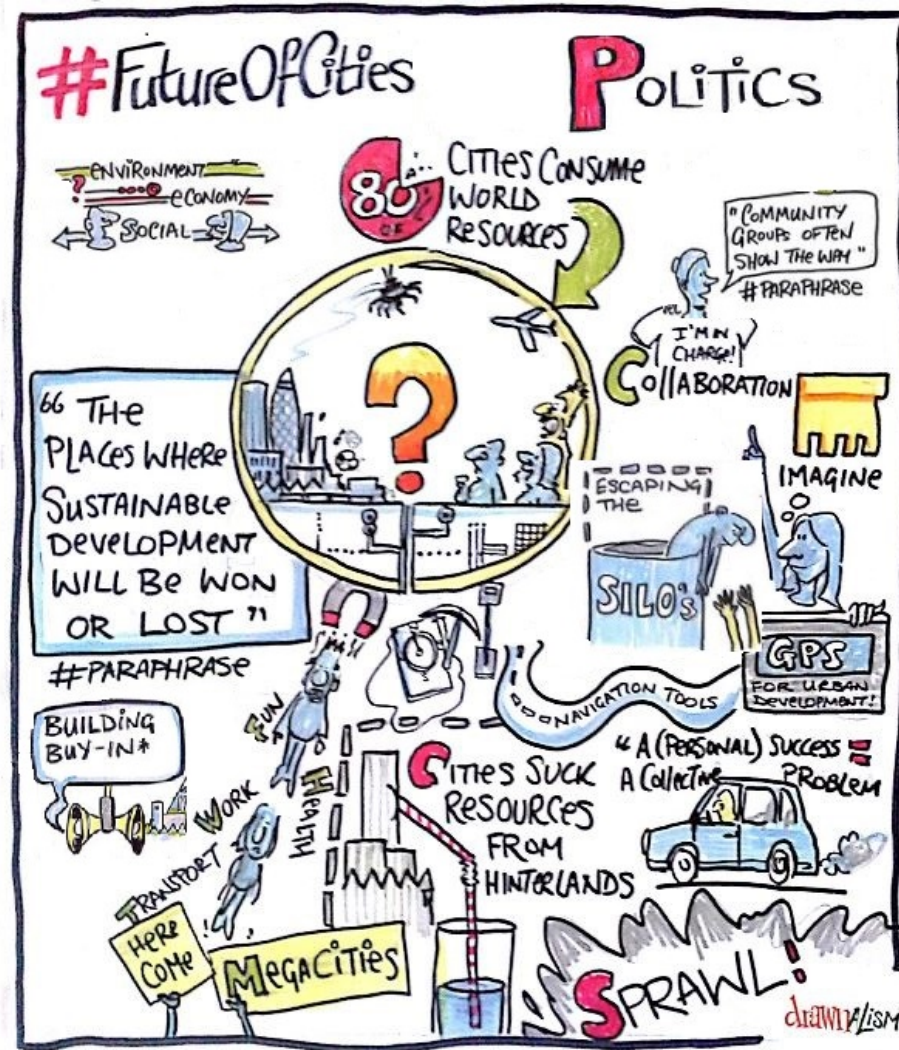 #FutureOfCities
POLITICS
ENVIRONMENT
ECONOMY
SOCIAL
80%
OF
CITIES CONSUME
WORLD
RESOURCES
"COMMUNITY
GROUPS OFTEN
SHOW THE WAY"
#PARAPHRASE
I'M IN
CHARGE!
COLLABORATION
IMAGINE
?
"THE
PLACES WHERE
SUSTAINABLE
DEVELOPMENT
WILL BE WON
OR LOST"
#PARAPHRASE
ESCAPING
THE
SILO's
GPS
FOR URBAN
DEVELOPMENT!
NAVIGATION TOOLS
BUILDING
BUY-IN*
FUN
HEALTH
WORK
TRANSPORT
CITIES SUCK
RESOURCES
FROM
HINTERLANDS
"A (PERSONAL) SUCCESS =
A COLLECTIVE PROBLEM
HERE
COME
MEGACITIES
SPRAWL!
drawnalism